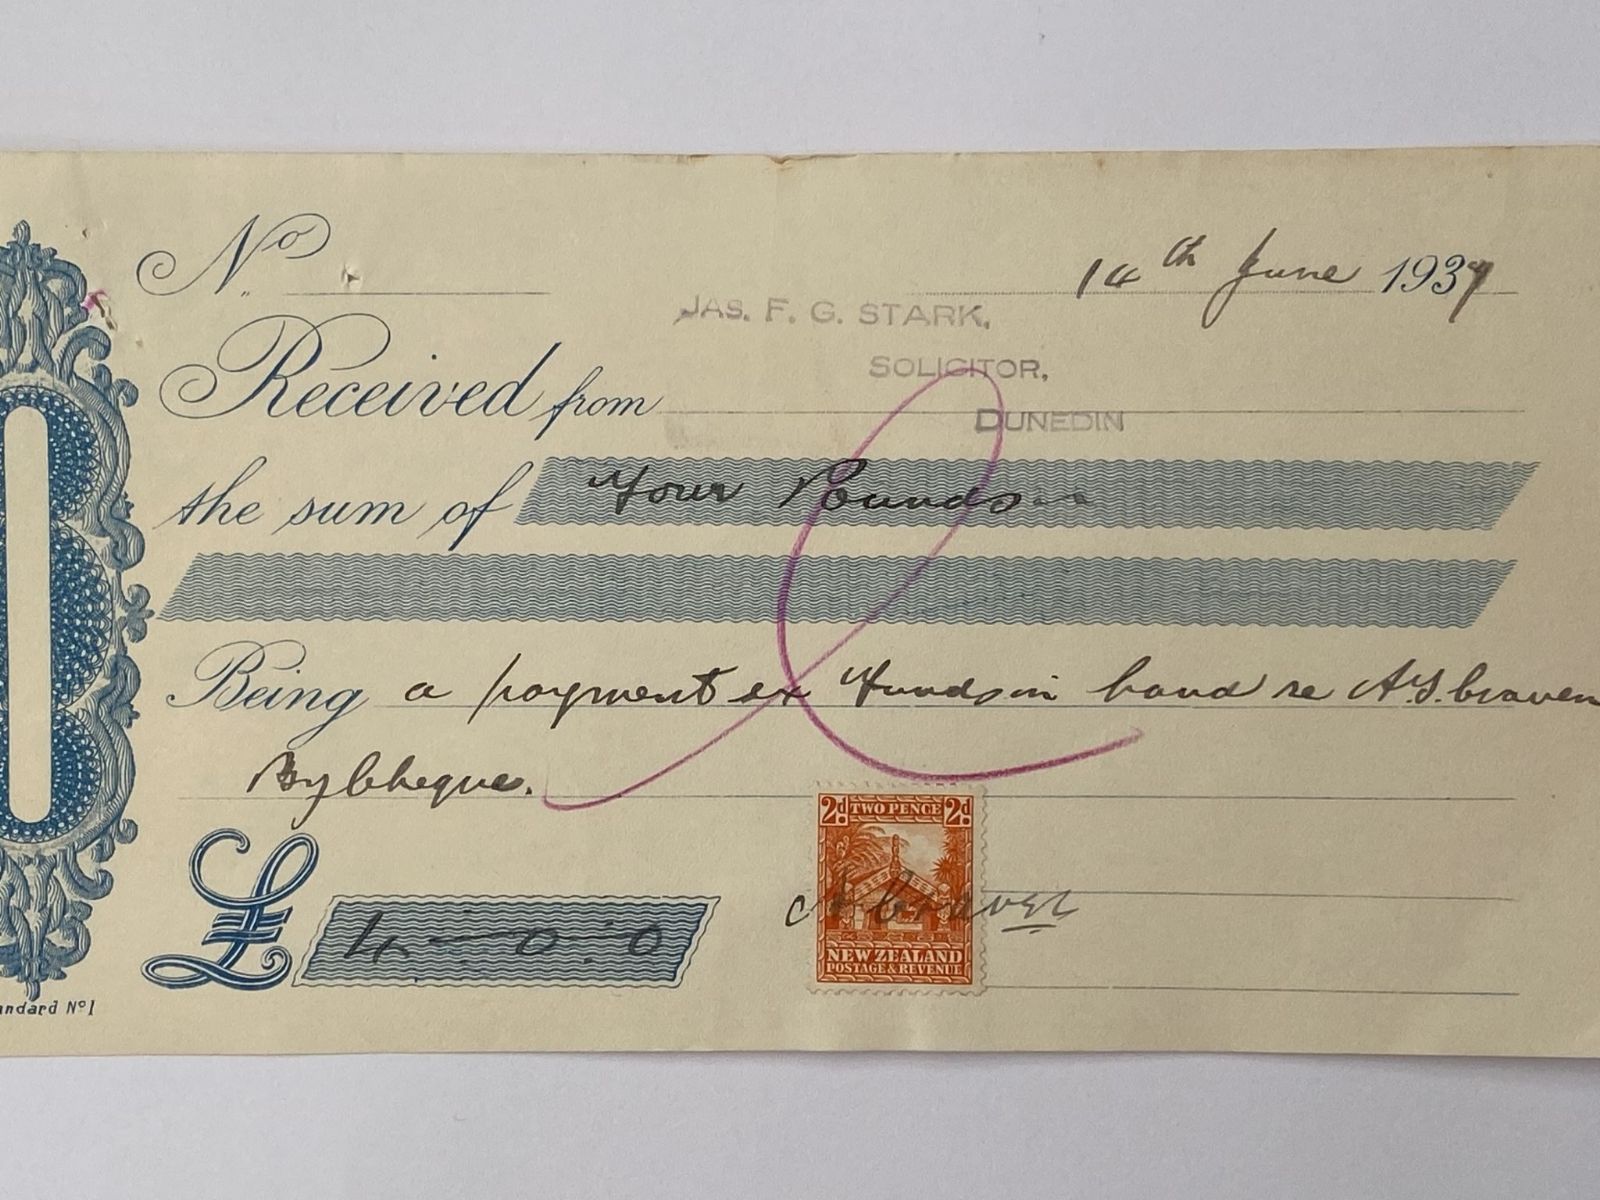 No
14th June 1937
JAS. F. G. STARK,
SOLICITOR,
DUNEDIN
Received from
the sum of Four Pounds
Being a payment ex Funds in hand re A.S. Craven
By Cheque.
2d TWO PENCE 2d
£ 4-0-0
A Craven
NEW ZEALAND
POSTAGE & REVENUE
andard No 1